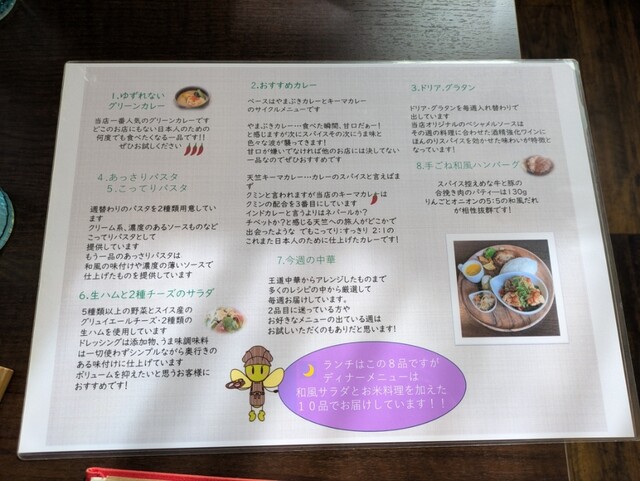 1.ゆずれない
グリーンカレー
当店一番人気のグリーンカレーです
どこのお店にもない日本人のための
何度でも食べたくなる一品です!!
ぜひお試しください
4.あっさりパスタ
5.こってりパスタ
週替わりのパスタを2種類用意してい
ます
クリーム系、濃度のあるソースものなど
こってりパスタとして
提供しています
もう一品のあっさりパスタは
和風の味付けや濃度の薄いソースで
仕上げたものを提供しています
6.生ハムと2種チーズのサラダ
5種類以上の野菜とスイス産の
グリュイエールチーズ・2種類の
生ハムを使用しています
ドレッシングは添加物、うま味調味料
は一切使わずシンプルながら奥行きの
ある味付けに仕上げています
ボリュームを抑えたいと思うお客様に
おすすめです!
2.おすすめカレー
ベースはやまぶきカレーとキーマカレー
のサイクルメニューです
やまぶきカレー…食べた瞬間、甘口だぁー!
と感じますが次にスパイスその次にうま味と
色々な波が襲ってきます!
甘口が嫌いでなければ他のお店には決してない
一品なのでぜひおすすめです
天竺キーマカレー…カレーのスパイスと言えばま
ず
クミンと言われますが当店のキーマカレーは
クミンの配合を3番目にしています
インドカレーと言うよりはネパールか?
チベットか?と感じる天竺への旅人がどこかで
出会ったような でもこってり:すっきり 2:1の
これまた日本人のために仕上げたカレーです!
7.今週の中華
王道中華からアレンジしたものまで
多くのレシピの中から厳選して
毎週お届けしています。
2品目に迷っている方や
お好きなメニューの出ている週は
お試しいただくのもありだと思います!
3.ドリア.グラタン
ドリア・グラタンを毎週入れ替わりで
出しています
当店オリジナルのベシャメルソースは
その週の料理に合わせた酒精強化ワインに
ほんのりスパイスを効かせた味わいが特徴と
なっています!
8.手ごね和風ハンバーグ
スパイス控えめな牛と豚の
合挽き肉のパティーは130g
りんごとオニオンの5:5の和風だれ
が相性抜群です!
ランチはこの8品ですが
ディナーメニューは
和風サラダとお米料理を加えた
10品でお届けしています!!